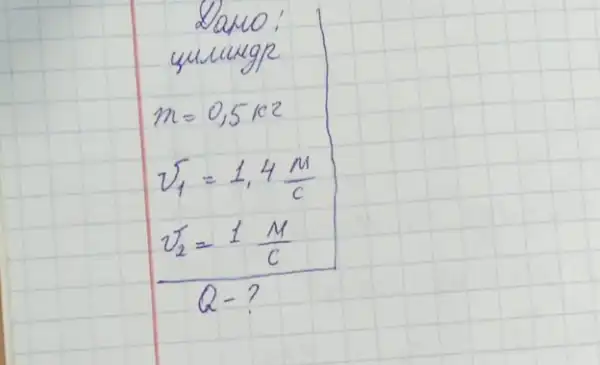 Дано:
цилиндр
m = 0,5 кг
υ₁ = 1,4 м/с
υ₂ = 1 м/с
Q - ?